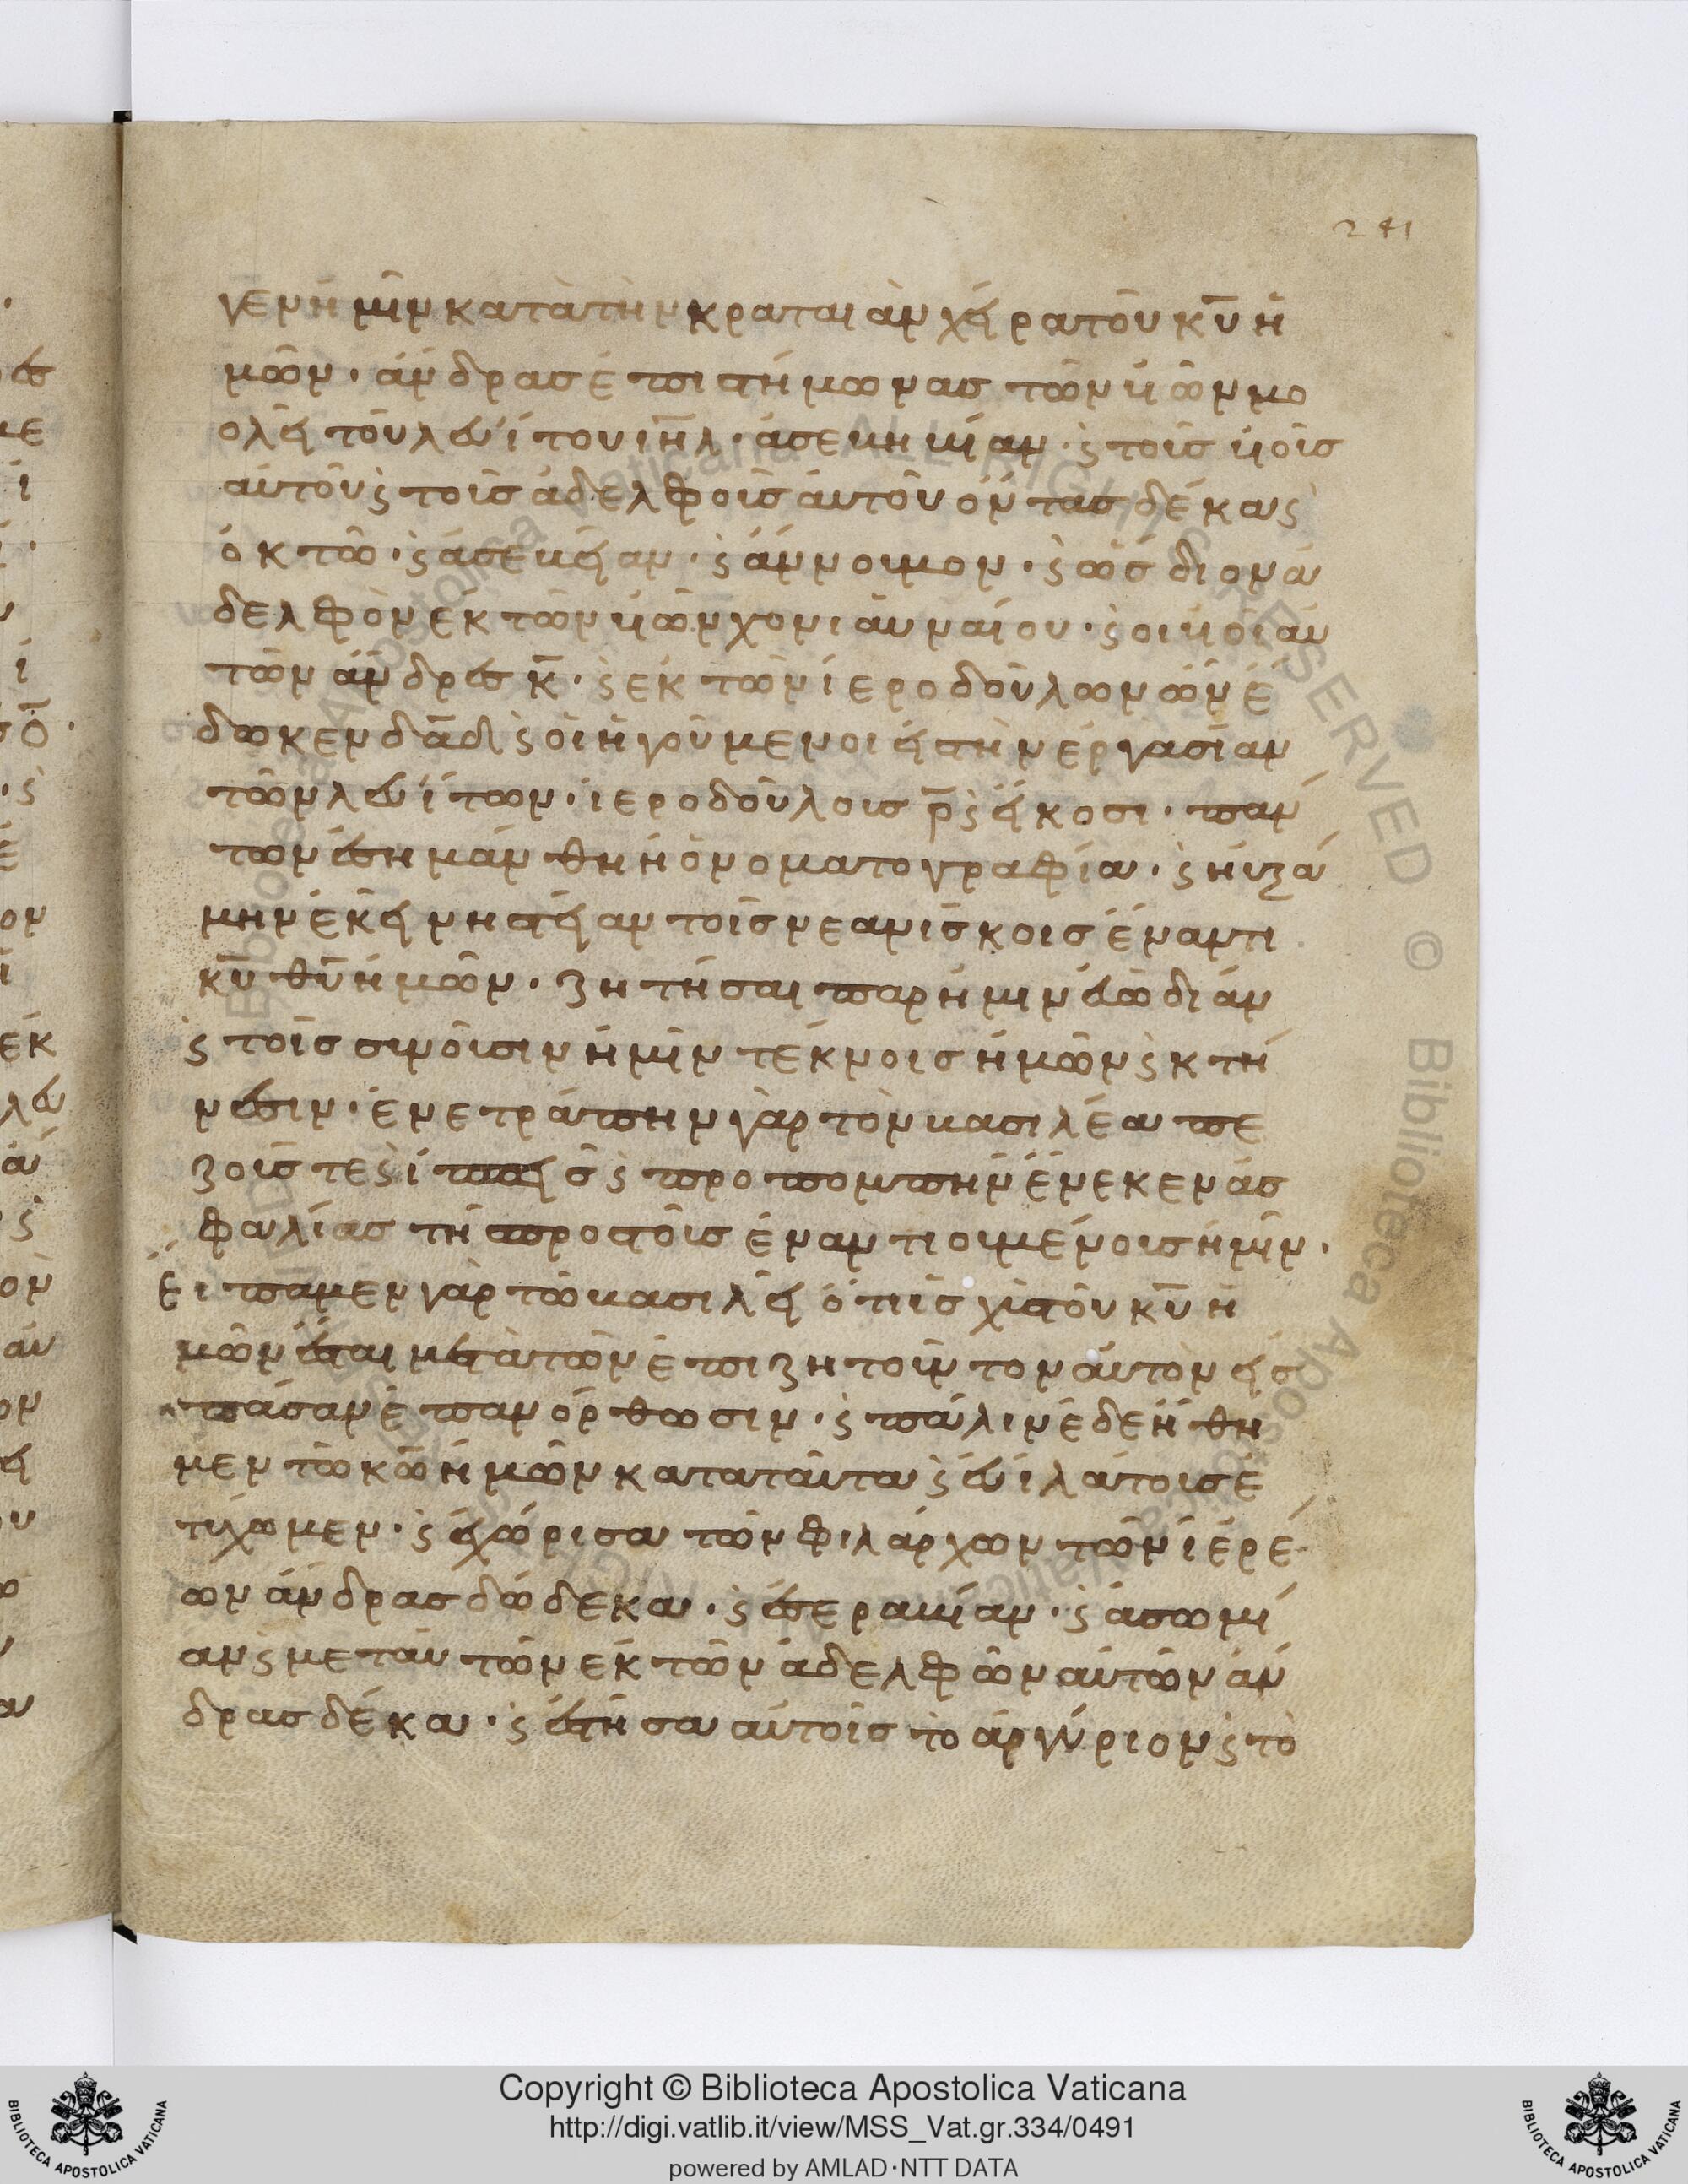 241
γεν ἡμῖν κατὰ τὴν κραταιὰν χεῖρα τοῦ κ̅υ̅ ἡ
μῶν · ἄνδρας ἐπιστήμωνας τῶν ὑιῶν μο
ολεὶ τοῦ λευὶ του ι̅η̅λ̅ · ἀσεβημίαν · ϛ τοῖς ὑιοῖς
αὐτοῦ ϛ τοῖς ἀδελφοῖς αὐτοῦ ὄντας δέκα ϛ
ὀκτὼ · ϛ ἀσεβείαν · ϛ ἄννουμον · ϛ ὡσδιον ἀ
δελφὸν ἐκ τῶν ὑιῶν χονιαυναίου · ϛ οι ὑιοὶ αὐ
τῶν ἄνδρες κ̅ · ϛ ἐκ τῶν ἱεροδούλων ὧν ἔ
δωκεν δα̅δ̅ ϛ οἱ ἡγούμενοι εἰς τὴν ἐργασίαν
τῶν λευίτων · ἱεροδούλοις ρ̅ ϛ εἴκοσι · παν
των ἐσημάνθη ἡ ὀνοματογραφία · ϛ ηὐξά
μην ἐκεῖ νηστείαν τοῖς νεανίσκοις ἔναντι
κ̅υ̅ θ̅υ̅ ἡμῶν · ζητῆσαι παρ ἡμιν εὐωδιάν
ϛ τοῖς σινοῦισιν ἡμῖν τέκνοις ἡμῶν ϛ κτή
νεσιν · ἐνετράπην γὰρ τὸν βασιλέα πε
ζοῖς τε ϛ ἱππεῖς ϛ προπομπὴν ἕνεκεν ἀσ
φαλίας τῆ προς τοῖς ἐναντιουμένοις ἡμῖν ·
εἴπαμεν γὰρ τῶ βασιλεῖ ὅτι ἰσχὶς τοῦ κ̅υ̅ ἡ
μῶν ἔσται μετὰ τῶν ἐπιζητούντον αὐτὸν εἰσ
πάσαν ἐπανόρθωσιν · ϛ πάλιν ἐδεήθη
μεν τῶ κ̅ω̅ ἡμῶν κατα ταῦτα ϛ εὐιλάτοις ἐ
τύχωμεν · ϛ ἐχώρισα τῶν φιλάρχων τῶν ἱερέ
ων ἄνδρας δώδεκα · ϛ ἐσεραμίαν · ϛ ἀσωμί
αν ϛ μεταυτῶν ἐκ τῶν ἀδελφῶν αὐτῶν ἄν
δρας δέκα · ϛ ἔστησα αὐτοῖς τὸ ἀργύριον ϛ τὸ
Copyright © Biblioteca Apostolica Vaticana
http://digi.vatlib.it/view/MSS_Vat.gr.334/0491
powered by AMLAD·NTT DATA